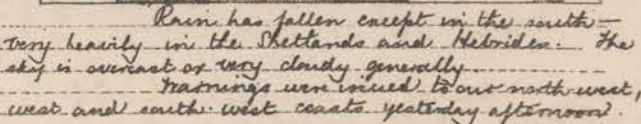 Rain has fallen except in the south —
very heavily in the Shetlands and Hebrides. The
sky is overcast or very cloudy generally
Warnings were issued to our north-west,
west and south-west coasts yesterday afternoon.